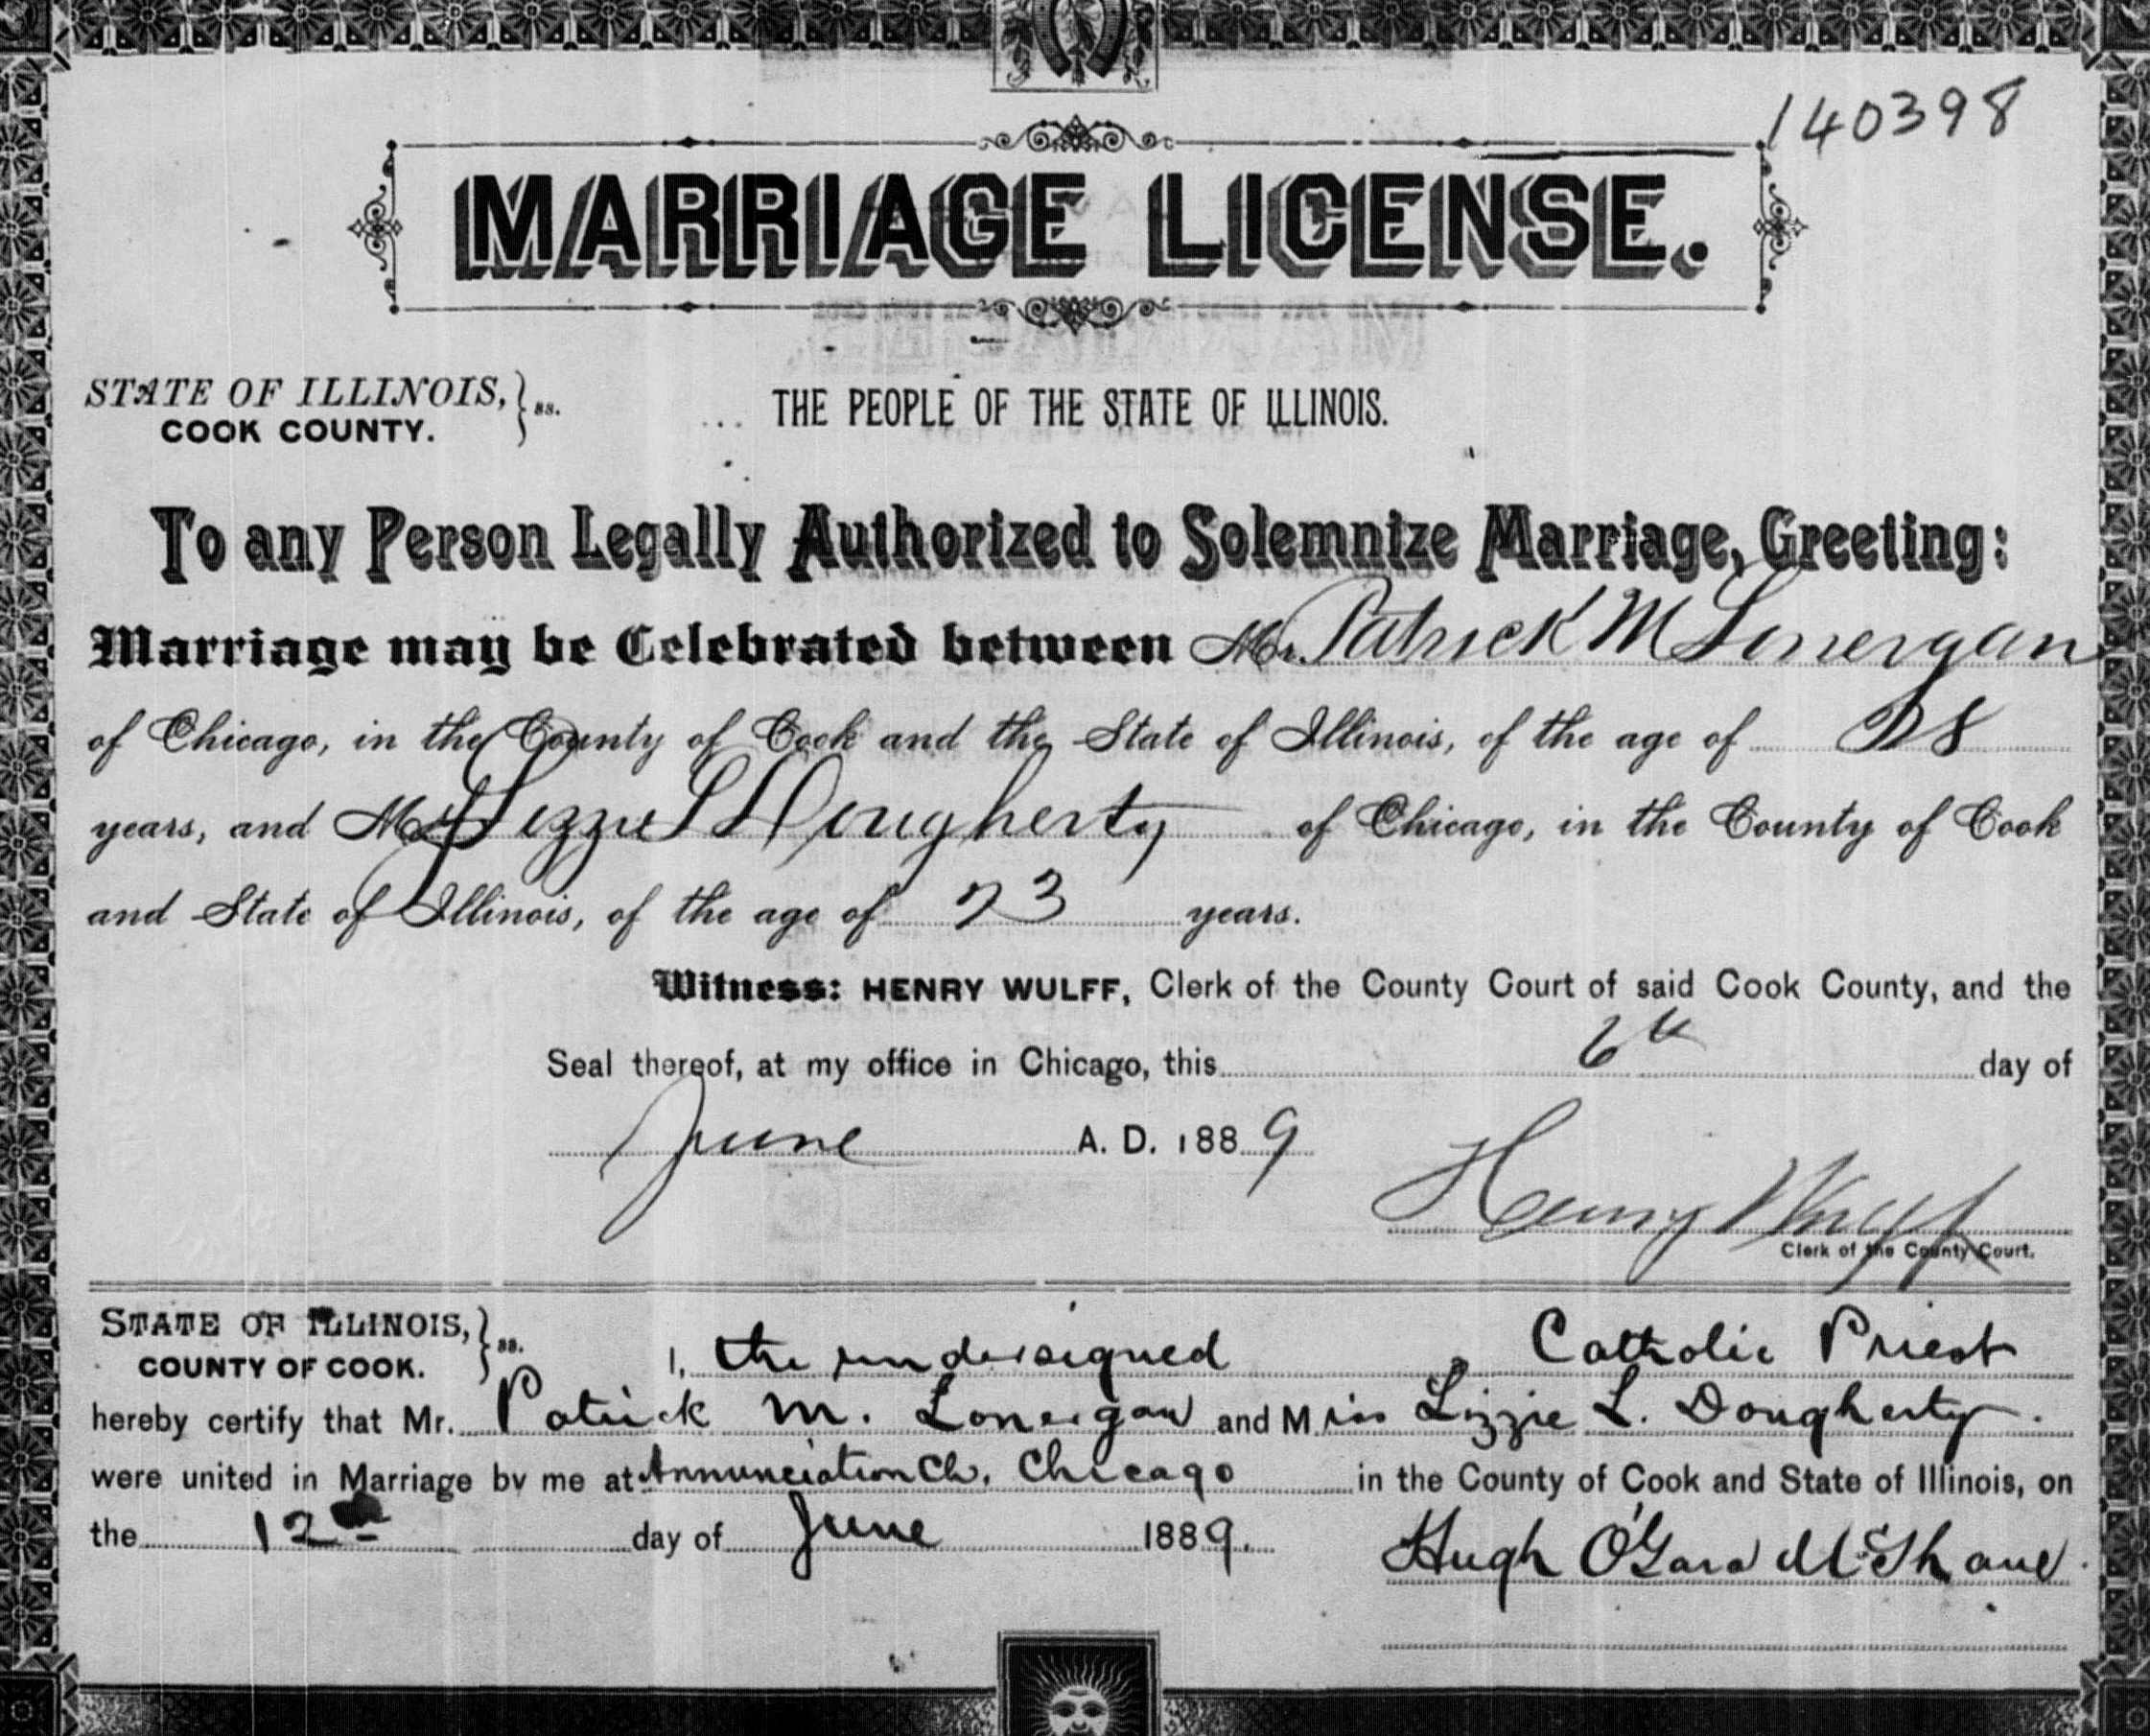 140398
MARRIAGE LICENSE.
STATE OF ILLINOIS, } ss.
COOK COUNTY.
THE PEOPLE OF THE STATE OF ILLINOIS.
To any Person Legally Authorized to Solemnize Marriage, Greeting:
Marriage may be Celebrated between Mr. Patrick M Lonergan
of Chicago, in the County of Cook and the State of Illinois, of the age of 28
years, and Miss Lizzie L Dougherty of Chicago, in the County of Cook
and State of Illinois, of the age of 23 years.
Witness: HENRY WULFF, Clerk of the County Court of said Cook County, and the
Seal thereof, at my office in Chicago, this 6th day of
June A. D. 1889
Henry Wulff
Clerk of the County Court.
STATE OF ILLINOIS, } ss.
COUNTY OF COOK.
I, the undersigned a Catholic Priest
hereby certify that Mr. Patrick M. Lonergan and Miss Lizzie L. Dougherty.
were united in Marriage by me at Annunciation Ch. Chicago in the County of Cook and State of Illinois, on
the 12th day of June 1889.
Hugh O'Gara McShane